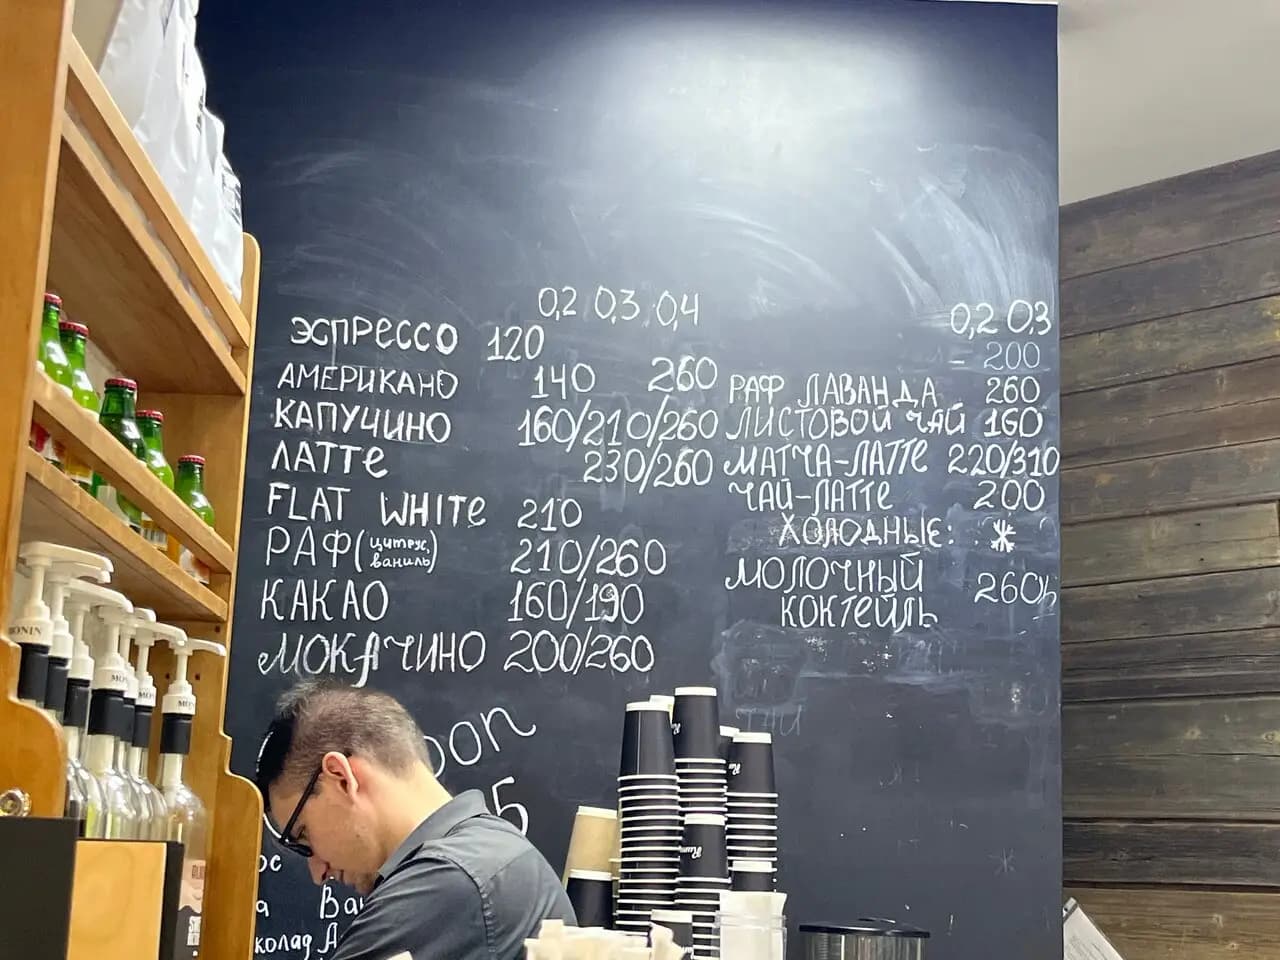 0,2 0,3 0,4
ЭСПРЕССО 120
АМЕРИКАНО 140 260
КАПУЧИНО 160/210/260
ЛАТТЕ 230/260
FLAT WHITE 210
РАФ (цитрус, ваниль) 210/260
КАКАО 160/190
МОКАЧИНО 200/260
0,2 0,3
- 200
РАФ ЛАВАНДА 260
ЛИСТОВОЙ ЧАЙ 160
МАТЧА-ЛАТТЕ 220/310
ЧАЙ-ЛАТТЕ 200
ХОЛОДНЫЕ:
МОЛОЧНЫЙ 260
КОКТЕЙЛЬ
MONIN